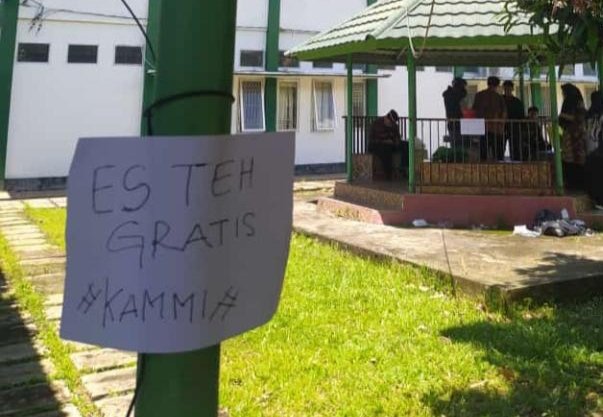 ES TEH
GRATIS
#KAMMI#